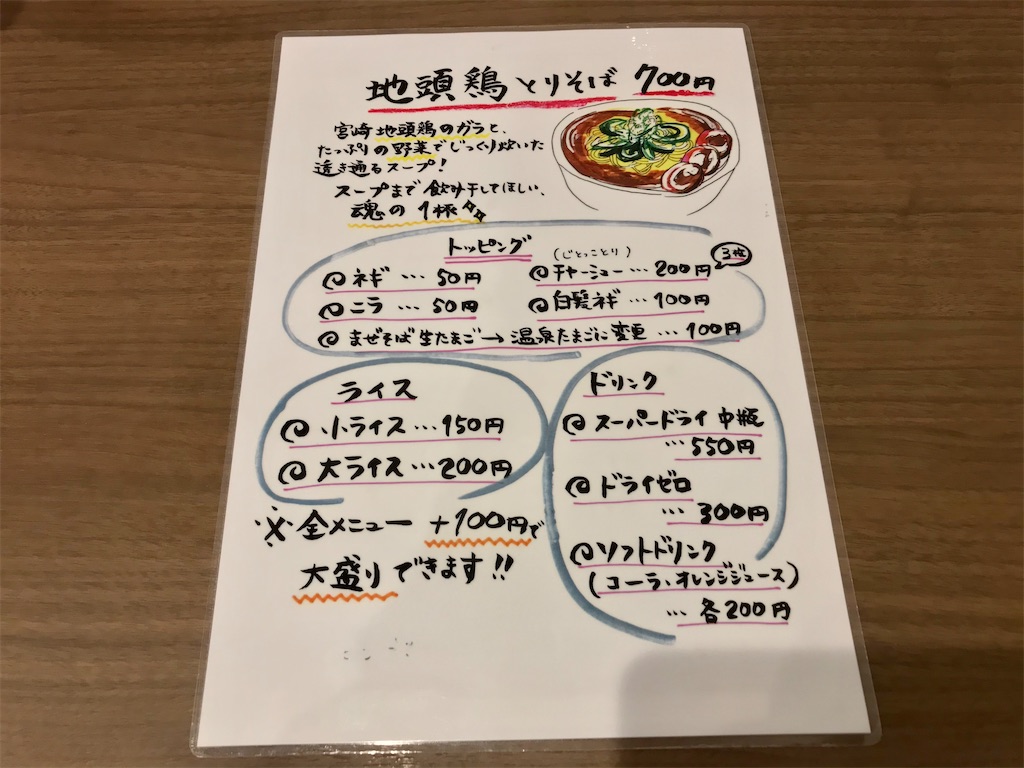 地頭鶏とりそば 700円
宮崎地頭鶏のガラと、
たっぷりの野菜でじっくり炊いた
透き通るスープ!
スープまで飲み干してほしい、
魂の1杯
トッピング
ネギ…50円
(じとっことり)
チャーシュー…200円
3枚
ニラ…50円
白髪ネギ…100円
まぜそば生たまご→温泉たまごに変更…100円
ライス
小ライス…150円
大ライス…200円
※全メニュー +100円で
大盛りできます!!
ドリンク
スーパードライ 中瓶
…550円
ドライゼロ
…300円
ソフトドリンク
(コーラ、オレンジジュース)
…各200円